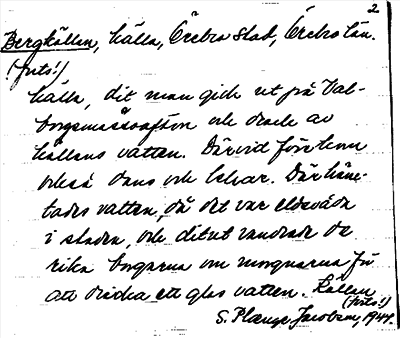 2
Bergkällan, källa, Örebro stad, Örebro län.
(foto!)
Källa, dit man gick ut på Val-
borgsmässoafton och drack av
källans vatten. Därvid förekom
också dans och lekar. Där häm-
tades vatten, då det var eldsvåda
i staden, och ditut vandrade de
rika borgarna om morgnarna för
att dricka ett glas vatten. Källan
(foto!)
S. Plænge Jacobson, 1944.